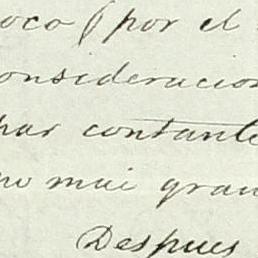 oco (por el
onsideracion
par contante
no mai gran
Despues